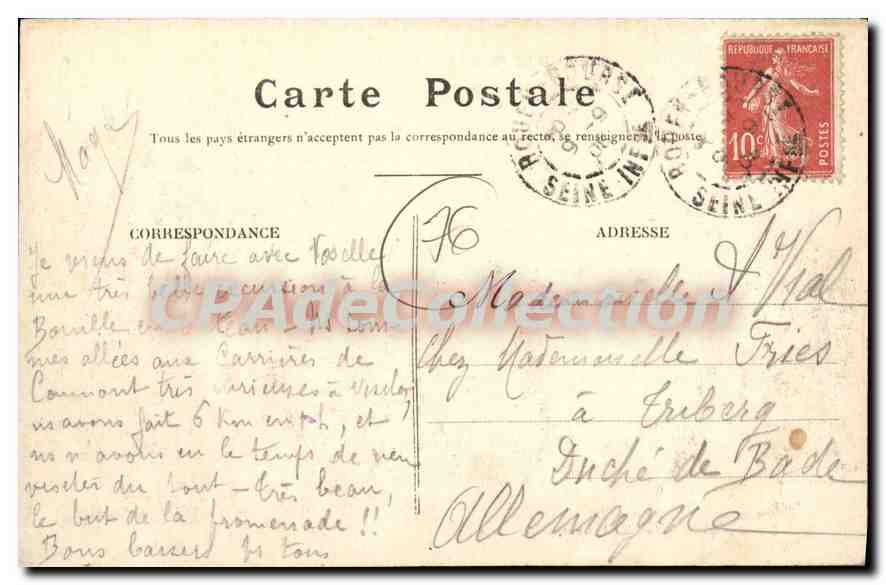 Carte Postale
Tous les pays étrangers n'acceptent pas la correspondance au recto, se renseigner à la poste
REPUBLIQUE FRANÇAISE
10c
POSTES
ROUEN
SEINE INFRE
ROUEN
SEINE INFRE
CORRESPONDANCE
ADRESSE
76
Je viens de faire avec
une très belle excursion à la
Bouille en bateau - ns som
mes allées aux Carrières de
Caumont très curieuses à visiter,
ns avons fait 6 Km en tt, et
ns n'avons eu le temps de rien
visiter du tout - très beau,
le but de la promenade !!
Bons baisers ps tous
Mademoiselle Vial
Chez Mademoiselle Fries
à Triberg
Duché de Bade
Allemagne
CPADeCollection